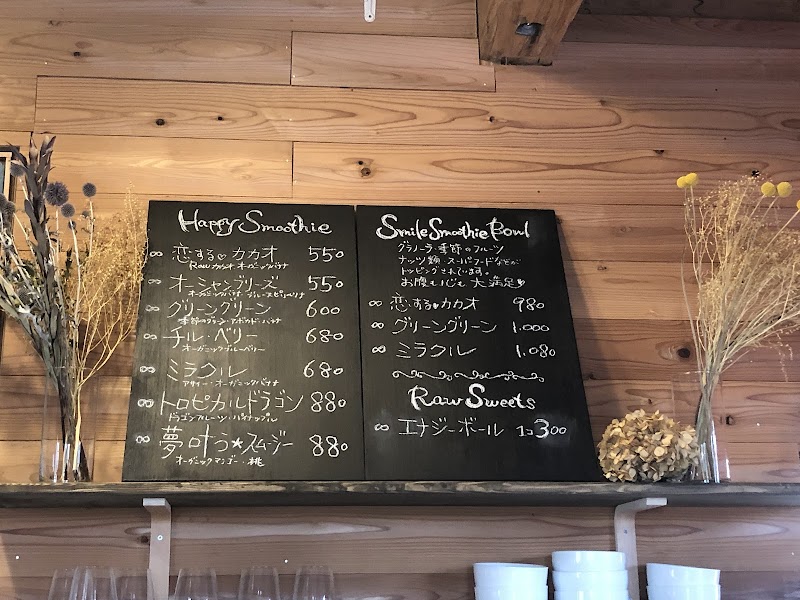 Happy Smoothie
∞ 恋する♡カカオ 550
Rawカカオ・オーガニックバナナ
∞ オーシャンブリーズ 550
オーガニックバナナ・ブルースピルリナ
∞ グリーングリーン 600
季節のグリーン・アボカド・バナナ
∞ チル・ベリー 680
オーガニックブルーベリー
∞ ミラクル 680
アサイー・オーガニックバナナ
∞ トロピカルドラゴン 880
ドラゴンフルーツ・パイナップル
∞ 夢叶う★スムージー 880
オーガニックマンゴー・桃
Smile Smoothie Bowl
グラノーラ・季節のフルーツ
ナッツ類・スーパーフードなどが
トッピングされています。
お腹も心も大満足♥
∞ 恋する♥カカオ 980
∞ グリーングリーン 1,000
∞ ミラクル 1,080
Raw Sweets
∞ エナジーボール 1コ 300